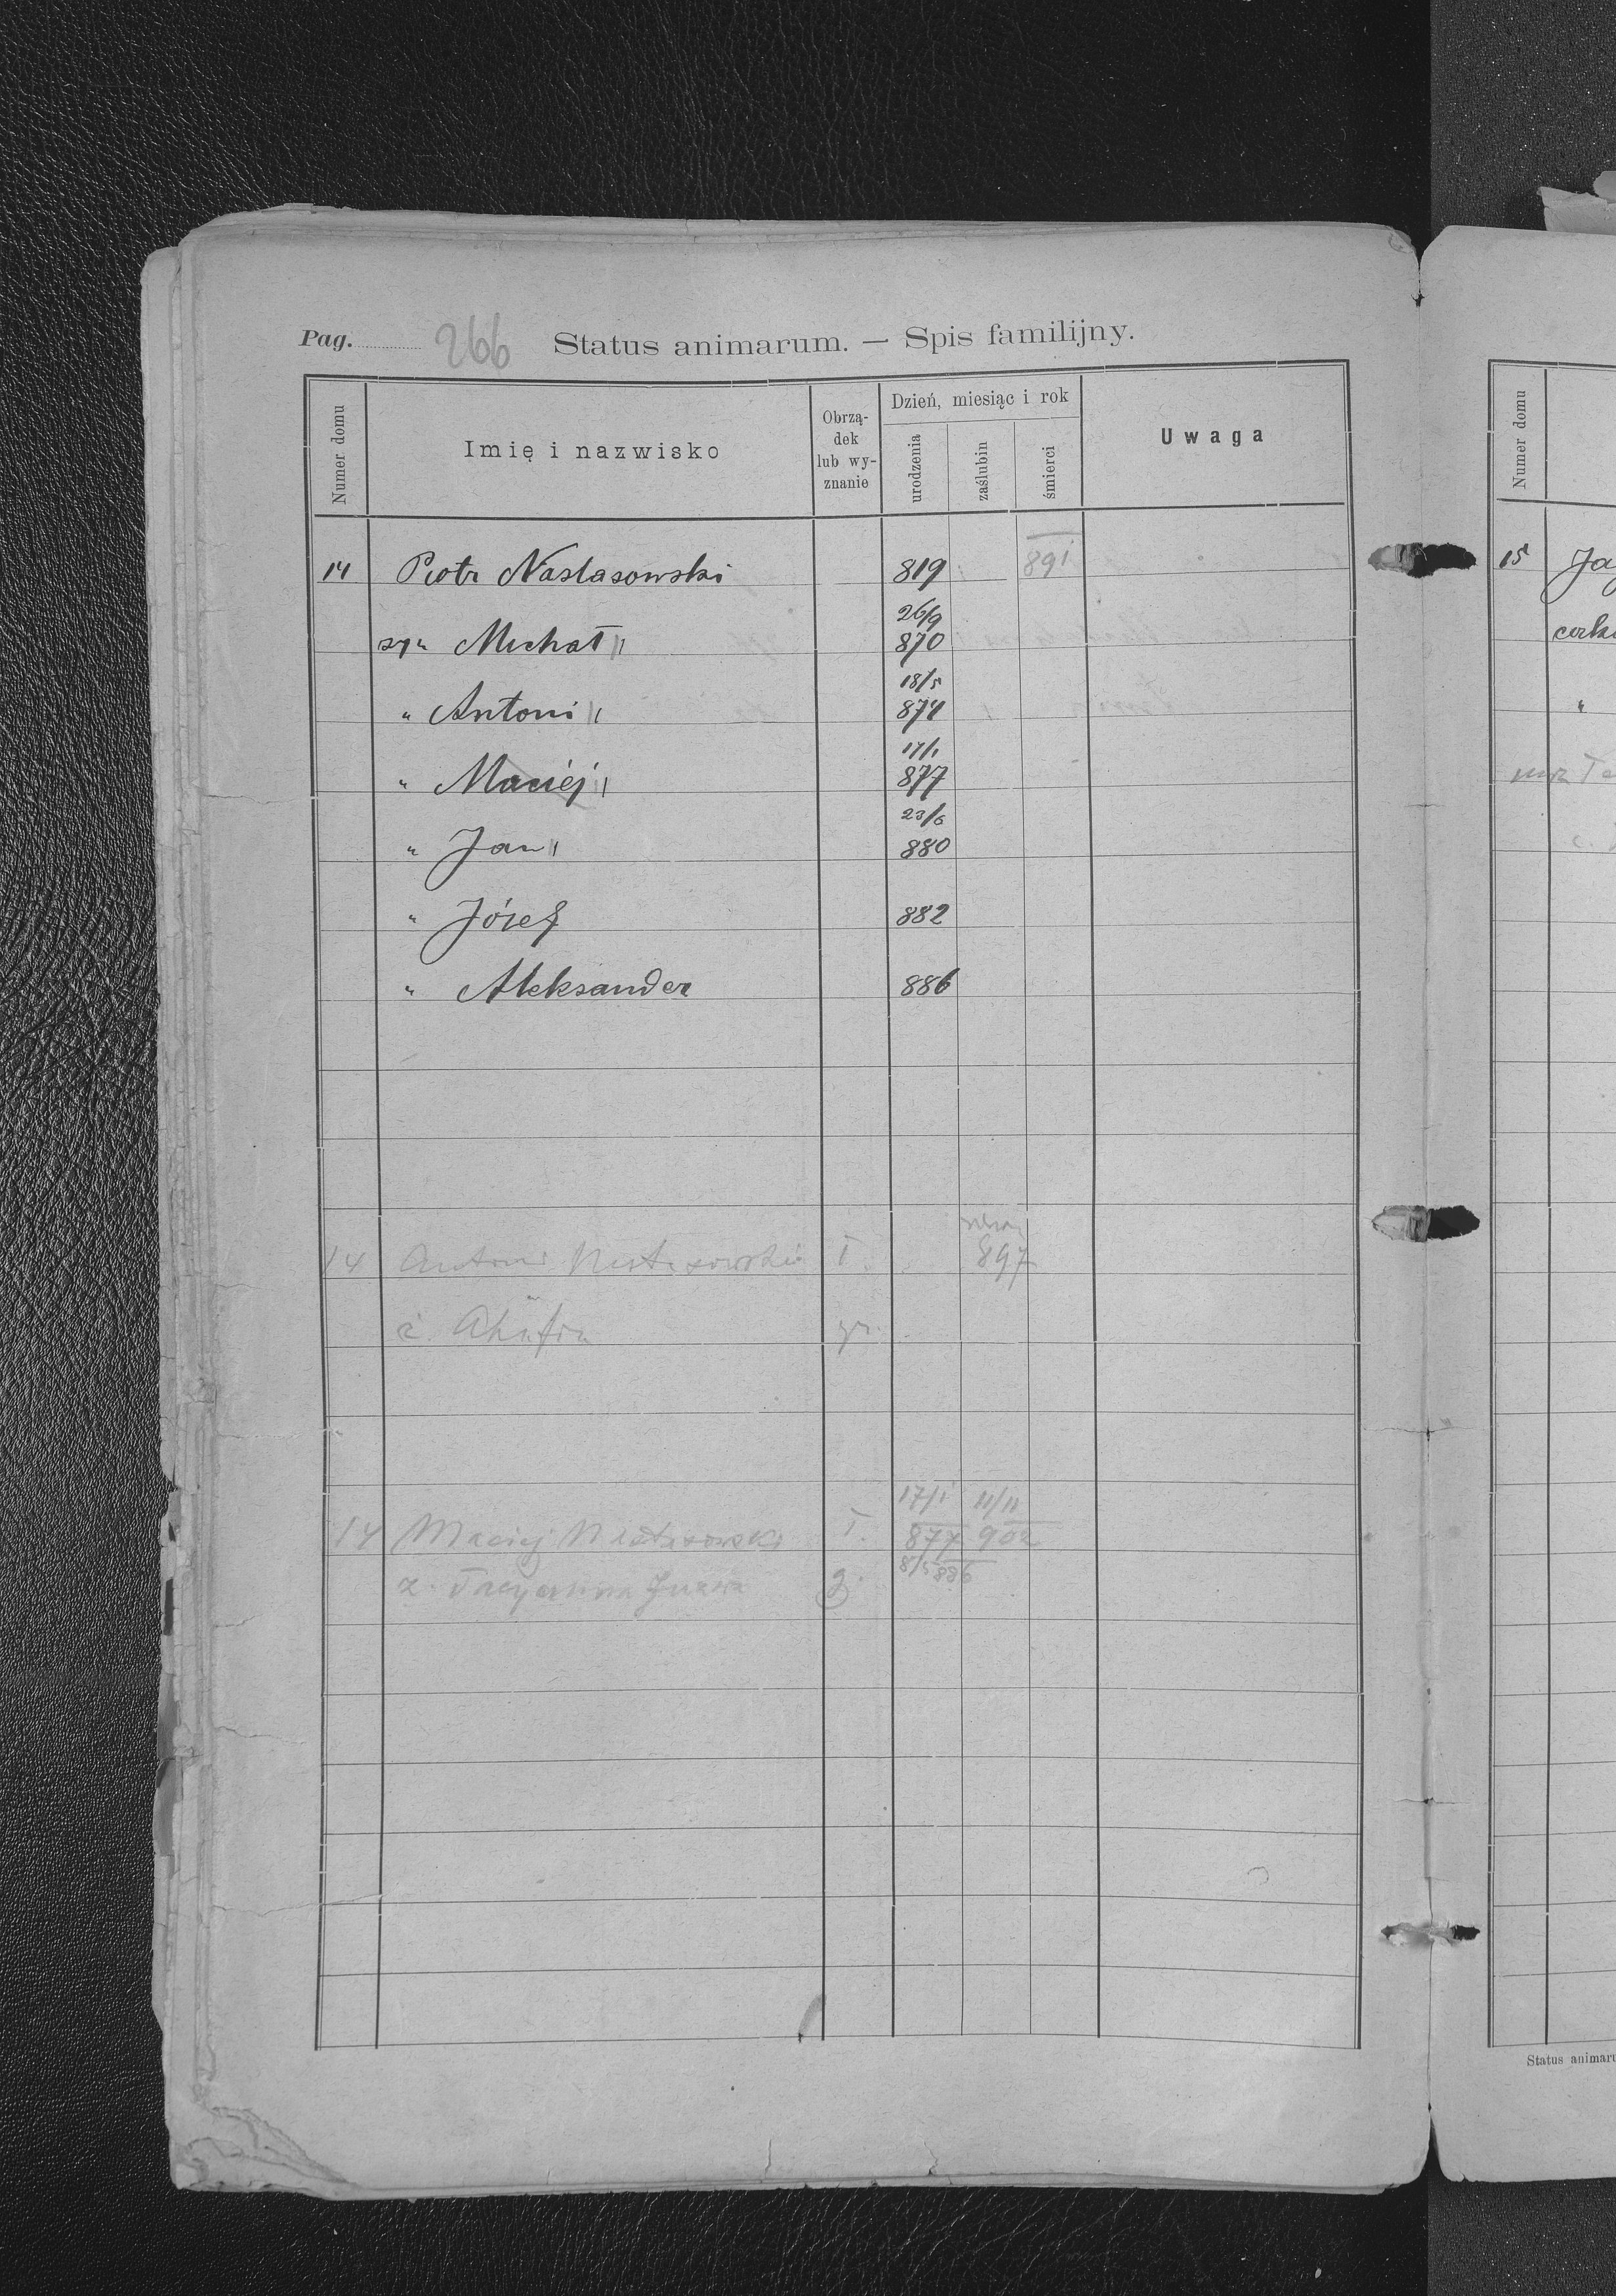 Pag. 266 Status animarum. — Spis familijny.
Numer domu
Imię i nazwisko
Obrzą-
dek
lub wy-
znanie
Dzień, miesiąc i rok
urodzenia
zaślubin
śmierci
Uwaga
14 Piotr Nastasowski 819 891
26/9
syn Michał 870
18/5
" Antoni 874
17/1
" Maciej 877
23/6
" Jan 880
" Józef 882
" Aleksander 886
14 Antoni Nastasowski ł. 897
ż. gr.
17/1 11/11
14 Maciej Nastasowski ł. 877 902
8/5 886
ż. Tacyanna g.
Numer domu
15
Status animaru